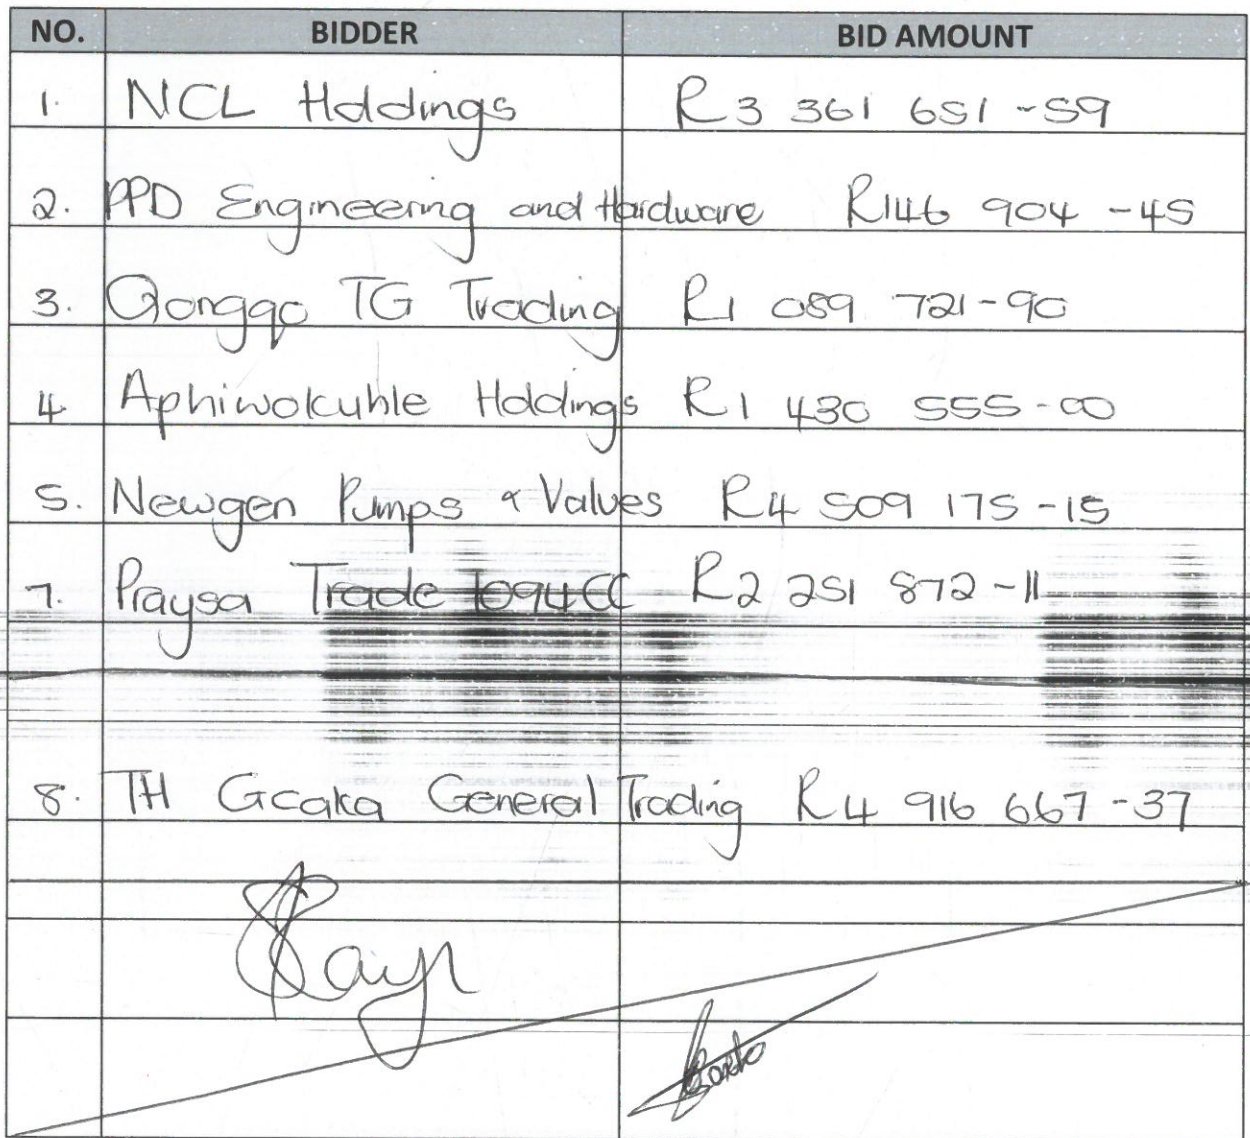 NO. BIDDER BID AMOUNT
1. NCL Holdings R3 361 651-59
2. PPD Engineering and Hardware R146 904-45
3. Qongqo TG Trading R1 089 721-90
4 Aphiwokuhle Holdings R1 430 555-00
5. Newgen Pumps & Values R4 509 175-15
7. Praysa Trade 1094CC R2 251 872-11
8. TH Gcaka General Trading R4 916 667-37